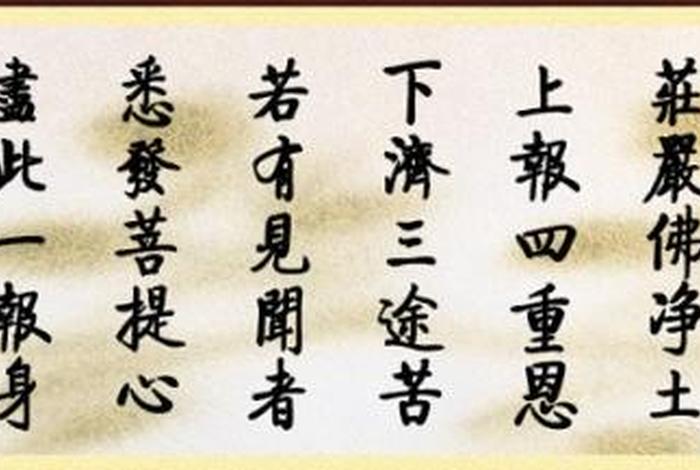 莊嚴佛净土
上報四重恩
下濟三途苦
若有見聞者
悉發菩提心
盡此一報身